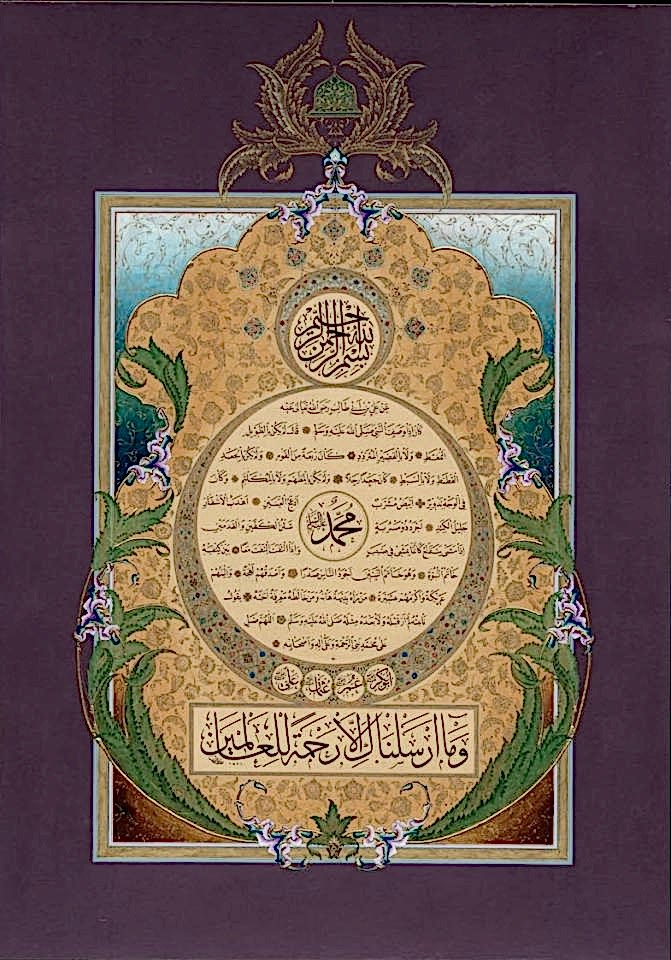 بسم الله الرحمن الرحيم
عن علي بن أبي طالب رضي الله تعالى عنه
كان إذا وصف النبي صلى الله عليه وسلم قال لم يكن بالطويل
الممغط ولا بالقصير المتردد كان ربعة من القوم ولم يكن بالجعد
القطط ولا بالسبط كان جعدا رجلا ولم يكن بالمطهم ولا بالمكلثم وكان
في الوجه تدوير أبيض مشرب أدعج العينين أهدب الأشفار
محمد عليه السلام
جليل الكتد أجرد ذو مسربة شثن الكفين والقدمين
إذا مشى تقلع كأنما يمشي في صبب وإذا التفت التفت معا بين كتفيه
خاتم النبوة وهو خاتم النبيين أجود الناس صدرا وأصدقهم لهجة وألينهم
عريكة وأكرمهم عشيرة من رآه بديهة هابه ومن خالطه معرفة أحبه يقول
ناعته لم أر قبله ولا بعده مثله صلى الله عليه وسلم اللهم صل
على محمد نبي الرحمة وعلى آله وأصحابه
أبوبكر عمر عثمان علي
وما أرسلناك إلا رحمة للعالمين